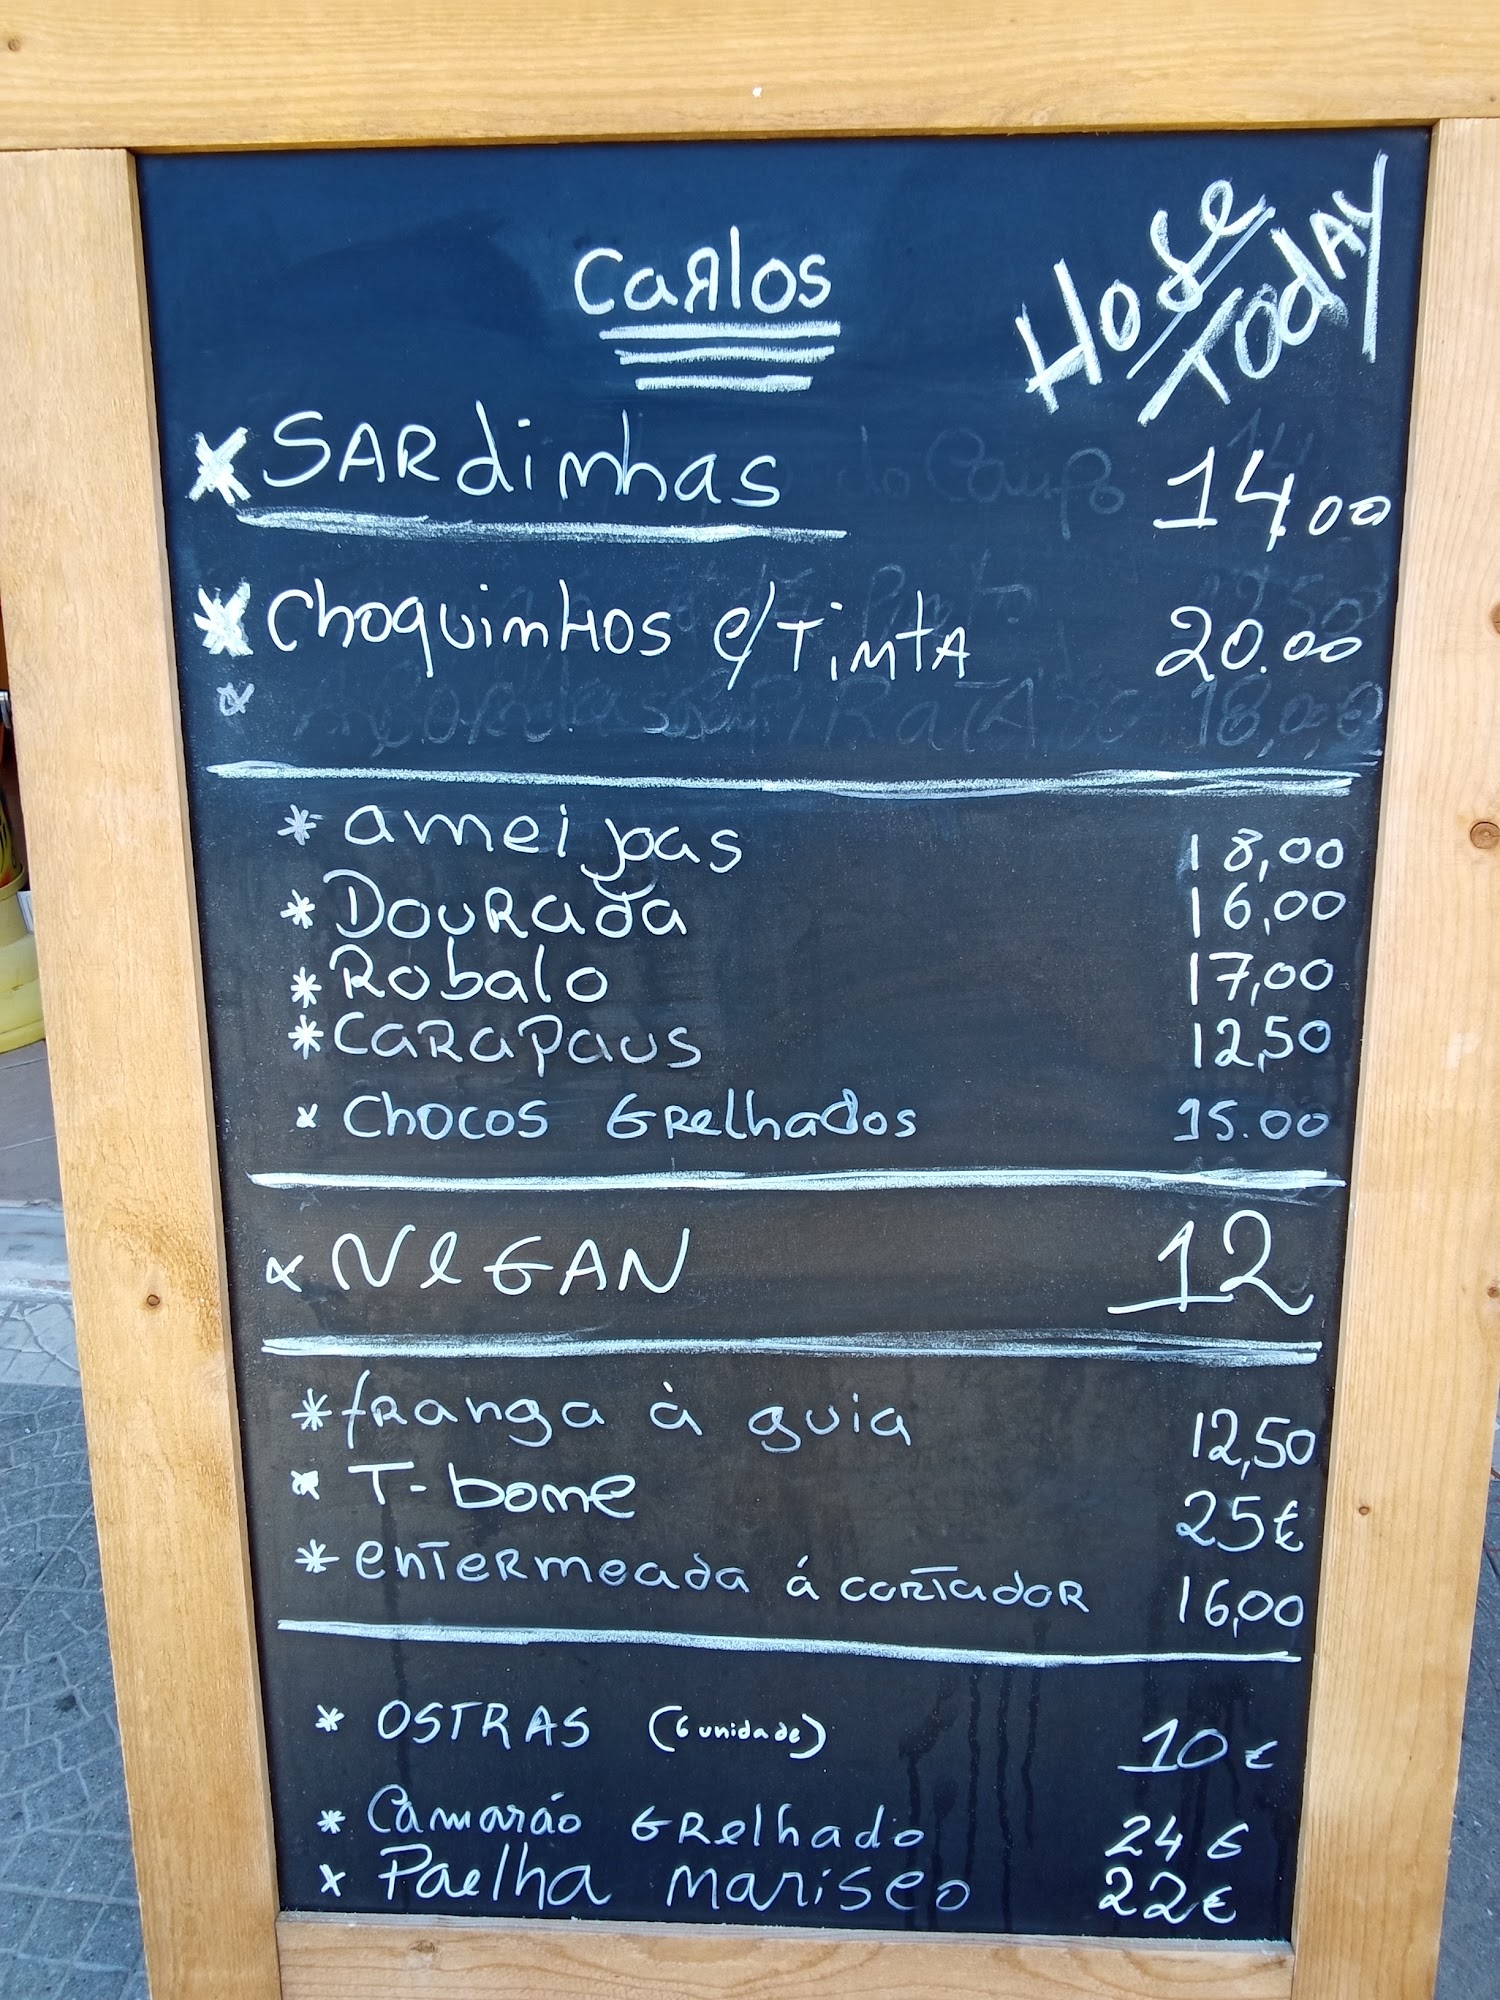 Carlos
Hoje/Today
* Sardinhas 14,00
* Choquinhos c/Tinta 20.00
* 18,00
* Ameijoas 18,00
* Dourada 16,00
* Robalo 17,00
* Carapaus 12,50
* Chocos Grelhados 15.00
* Vegan 12
* franga à guia 12,50
* T-bone 25€
* entermeada á cortador 16,00
* OSTRAS (6 unidade) 10€
* Camarão Grelhado 24€
* Paelha Marisco 22€